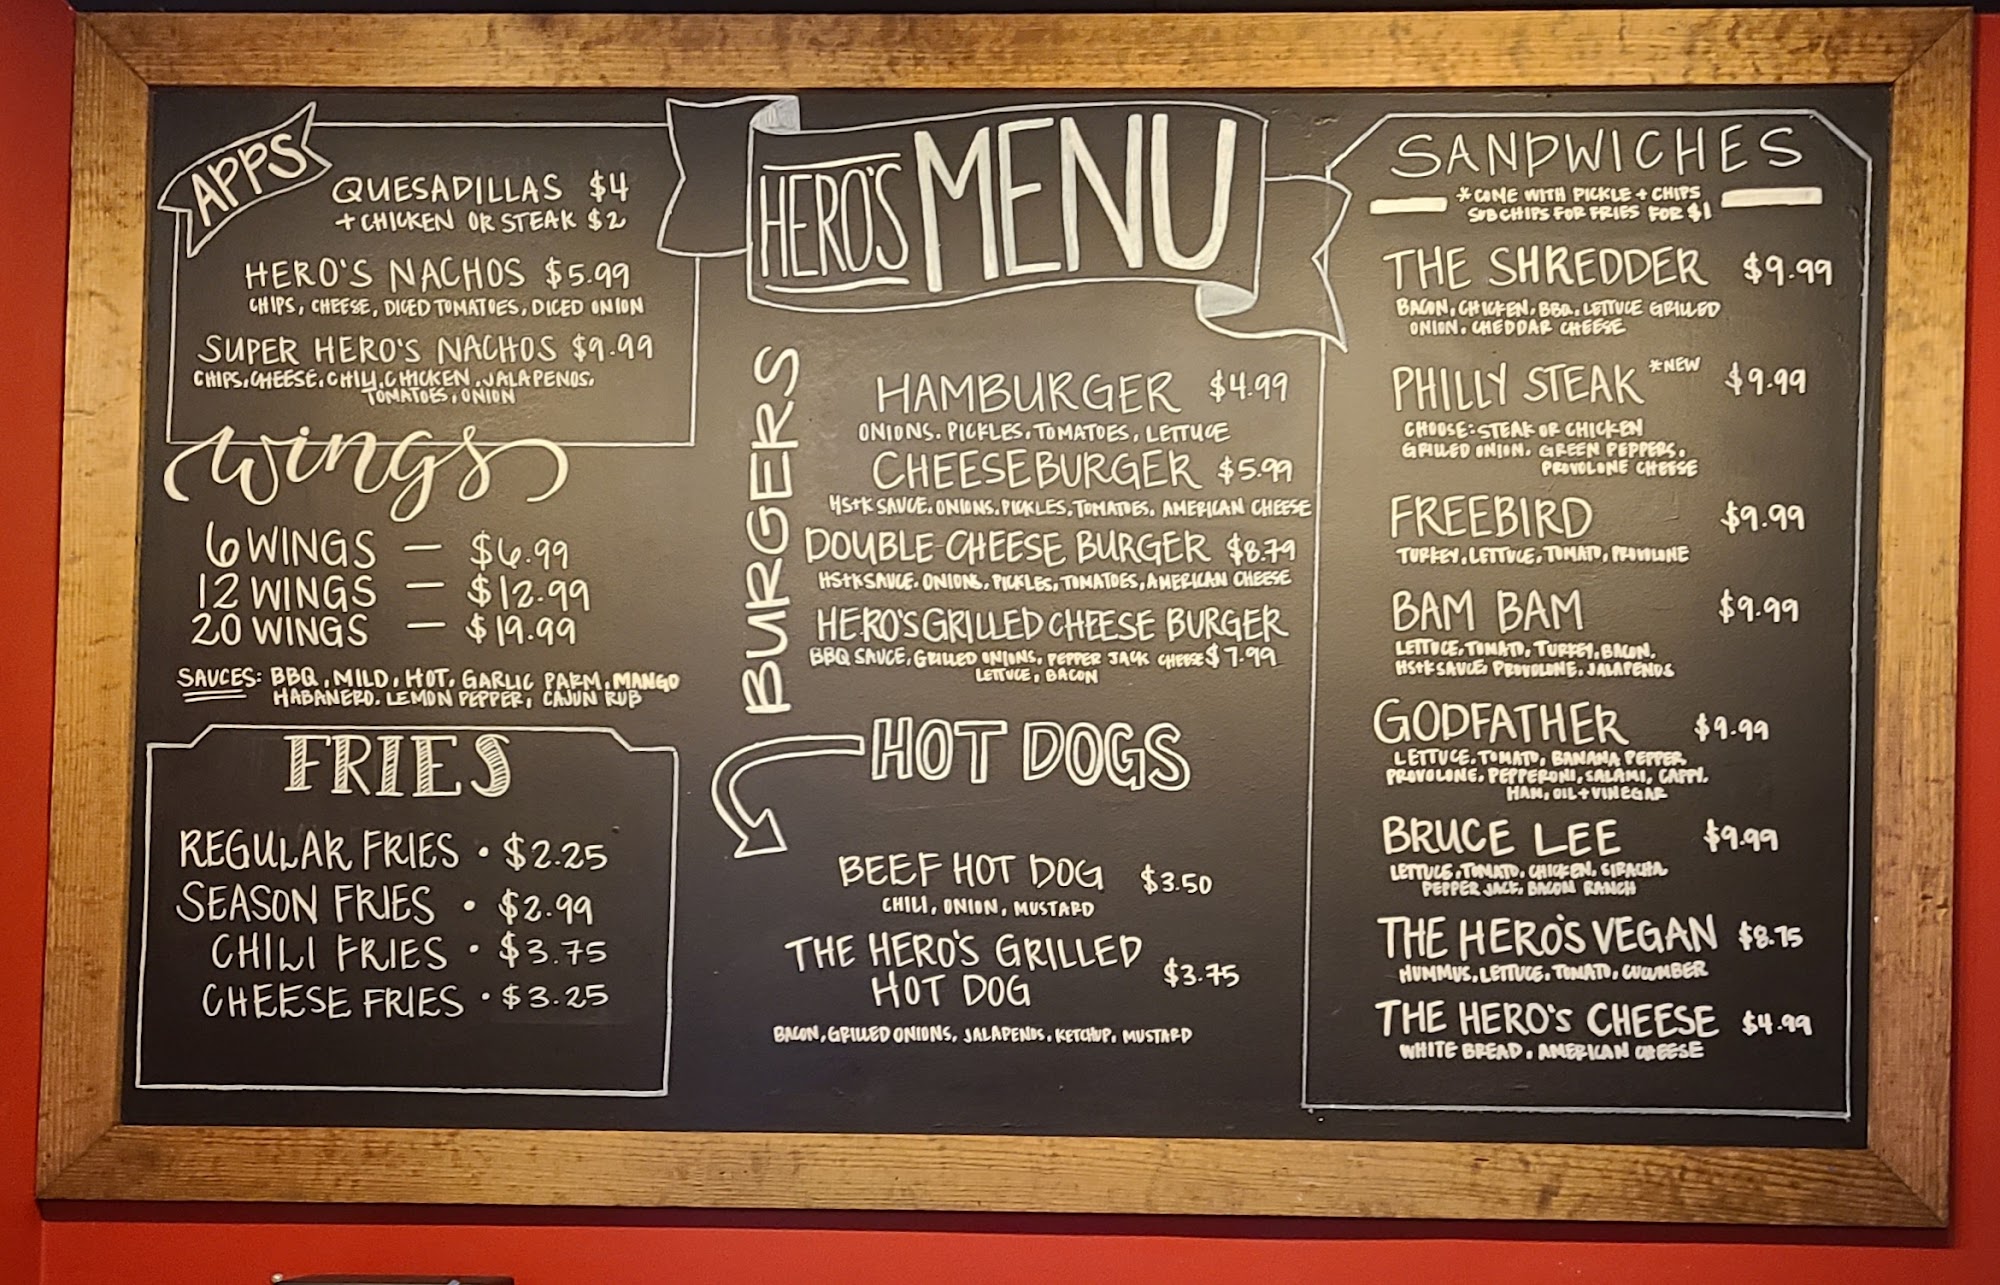 APPS
QUESADILLAS $4
+ CHICKEN OR STEAK $2
HERO'S NACHOS $5.99
CHIPS, CHEESE, DICED TOMATOES, DICED ONION
SUPER HERO'S NACHOS $9.99
CHIPS, CHEESE, CHILI, CHICKEN, JALAPENOS,
TOMATOES, ONION
Wings
6 WINGS — $6.99
12 WINGS — $12.99
20 WINGS — $19.99
SAUCES: BBQ, MILD, HOT, GARLIC PARM, MANGO
HABANERO, LEMON PEPPER, CAJUN RUB
FRIES
REGULAR FRIES • $2.25
SEASON FRIES • $2.99
CHILI FRIES • $3.75
CHEESE FRIES • $3.25
HERO'S MENU
BURGERS
HAMBURGER $4.99
ONIONS, PICKLES, TOMATOES, LETTUCE
CHEESEBURGER $5.99
HS+K SAUCE, ONIONS, PICKLES, TOMATOES, AMERICAN CHEESE
DOUBLE CHEESE BURGER $8.79
HS+K SAUCE, ONIONS, PICKLES, TOMATOES, AMERICAN CHEESE
HERO'S GRILLED CHEESE BURGER
BBQ SAUCE, GRILLED ONIONS, PEPPER JACK CHEESE $7.99
LETTUCE, BACON
HOT DOGS
BEEF HOT DOG $3.50
CHILI, ONION, MUSTARD
THE HERO'S GRILLED
HOT DOG $3.75
BACON, GRILLED ONIONS, JALAPENOS, KETCHUP, MUSTARD
SANDWICHES
*COME WITH PICKLE + CHIPS
SUB CHIPS FOR FRIES FOR $1
THE SHREDDER $9.99
BACON, CHICKEN, BBQ, LETTUCE GRILLED
ONION, CHEDDAR CHEESE
PHILLY STEAK *NEW $9.99
CHOOSE: STEAK OR CHICKEN
GRILLED ONION, GREEN PEPPERS,
PROVOLONE CHEESE
FREEBIRD $9.99
TURKEY, LETTUCE, TOMATO, PROVOLONE
BAM BAM $9.99
LETTUCE, TOMATO, TURKEY, BACON,
HS+K SAUCE PROVOLONE, JALAPENOS
GODFATHER $9.99
LETTUCE, TOMATO, BANANA PEPPER,
PROVOLONE, PEPPERONI, SALAMI, CAPPI,
HAM, OIL + VINEGAR
BRUCE LEE $9.99
LETTUCE, TOMATO, CHICKEN, SIRACHA,
PEPPER JACK, BACON RANCH
THE HERO'S VEGAN $8.75
HUMMUS, LETTUCE, TOMATO, CUCUMBER
THE HERO'S CHEESE $4.99
WHITE BREAD, AMERICAN CHEESE